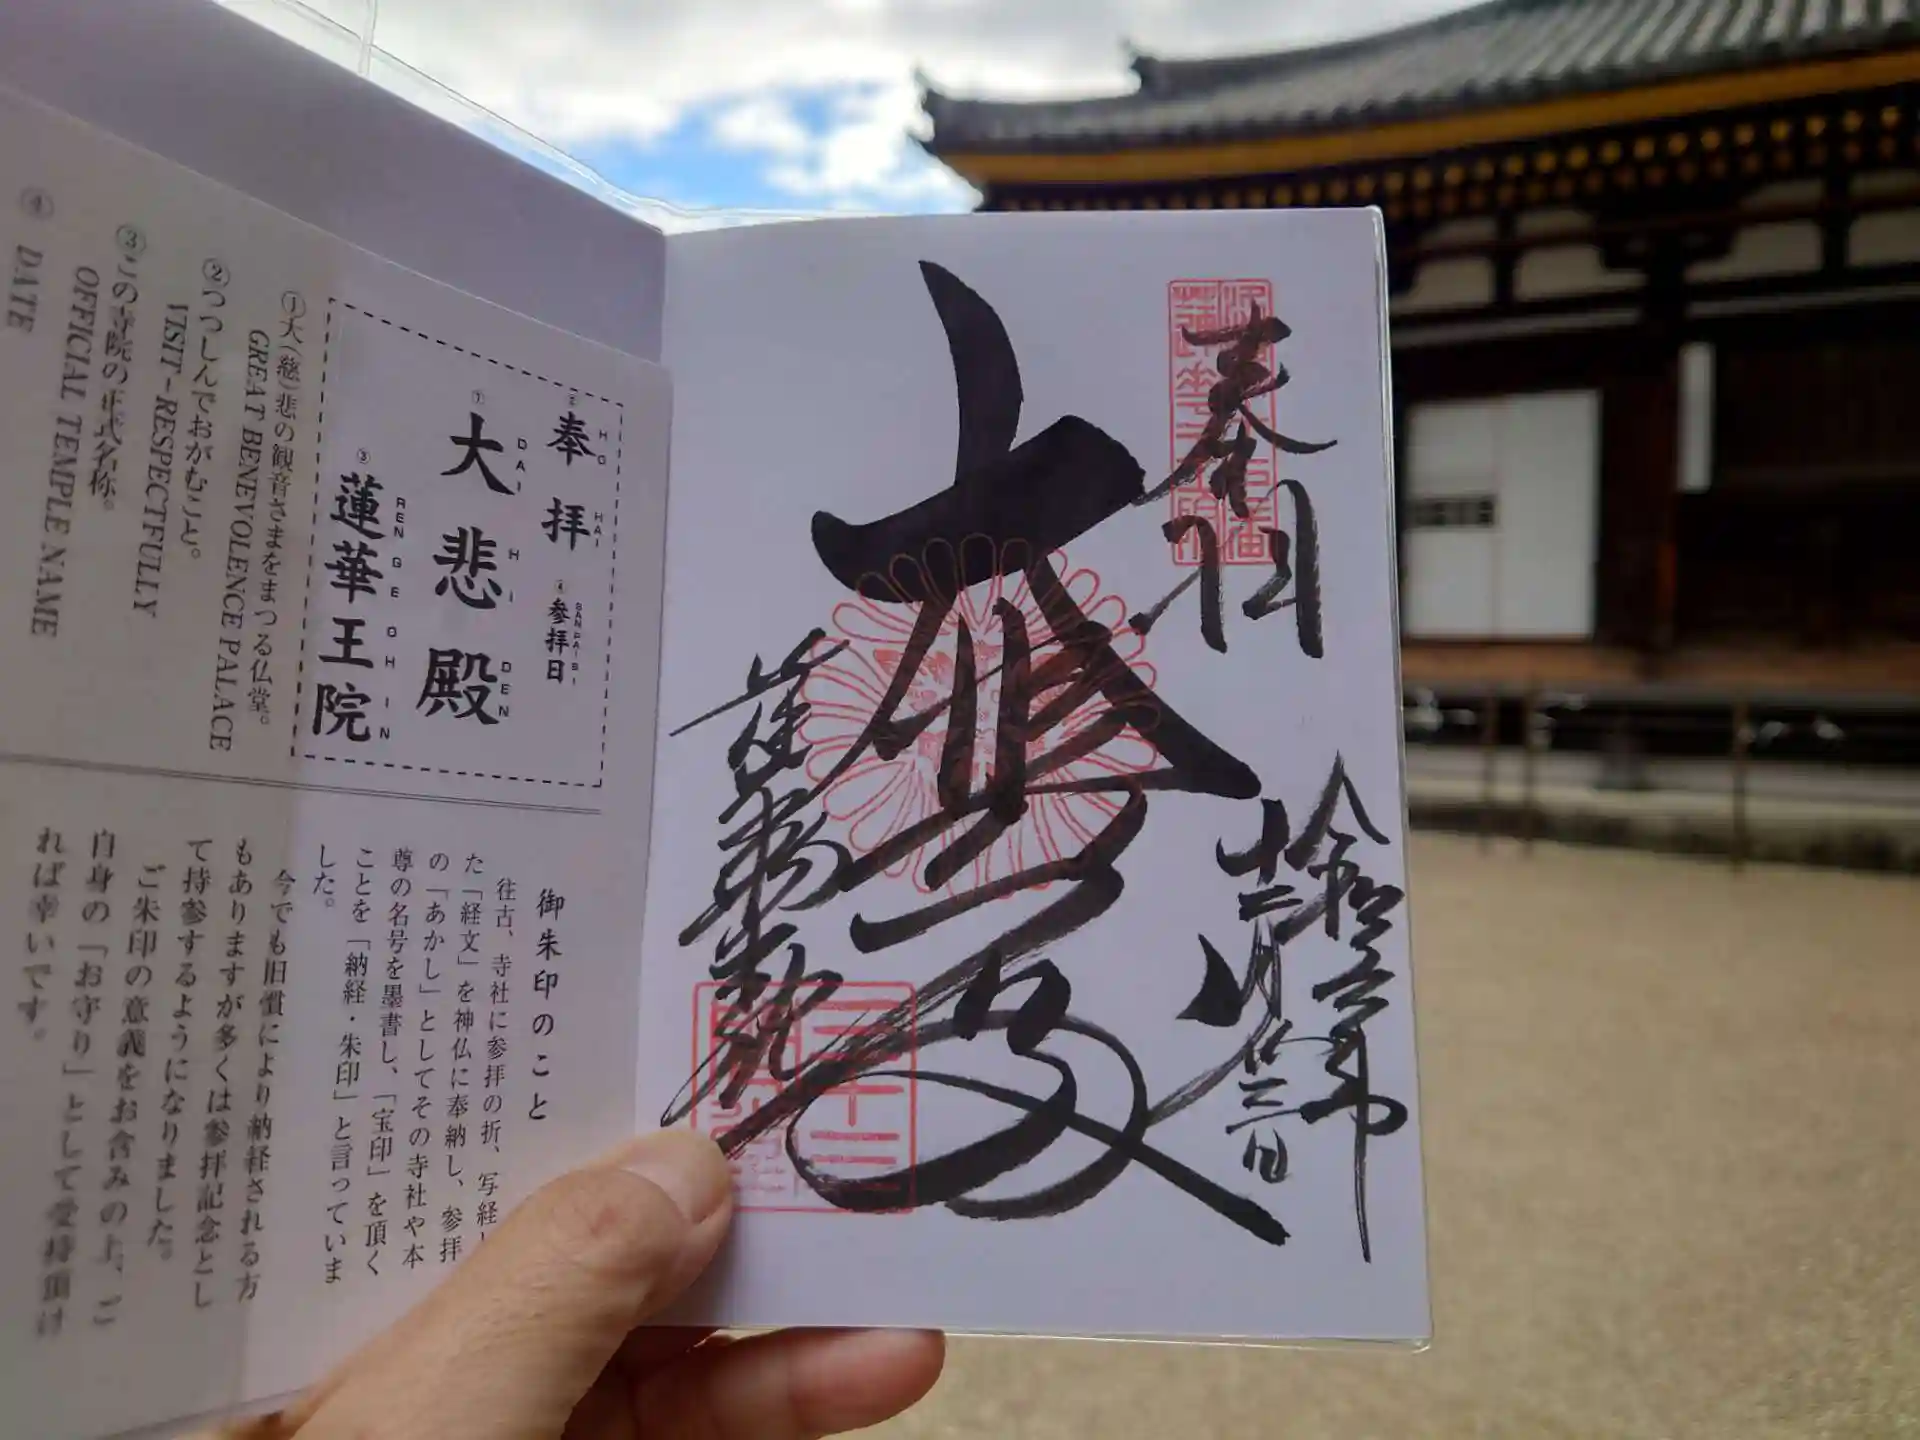 奉拝
大悲殿
蓮華王院
② 奉拝
HO HAI
④ 参拝日
SAN PAI BI
① 大悲殿
DAI HI DEN
③ 蓮華王院
REN GE OH IN
①大(慈)悲の観音さまをまつる仏堂。
GREAT BENEVOLENCE PALACE
②つつしんでおがむこと。
VISIT-RESPECTFULLY
③この寺院の正式名称。
OFFICIAL TEMPLE NAME
④
DATE
御朱印のこと
往古、寺社に参拝の折、写経し
た「経文」を神仏に奉納し、参拝
の「あかし」としてその寺社や本
尊の名号を墨書し、「宝印」を頂く
ことを「納経・朱印」と言っていま
した。
今でも旧慣により納経される方
もありますが多くは参拝記念とし
て持参するようになりました。
ご朱印の意義をお含みの上、ご
自身の「お守り」として受持頂け
れば幸いです。